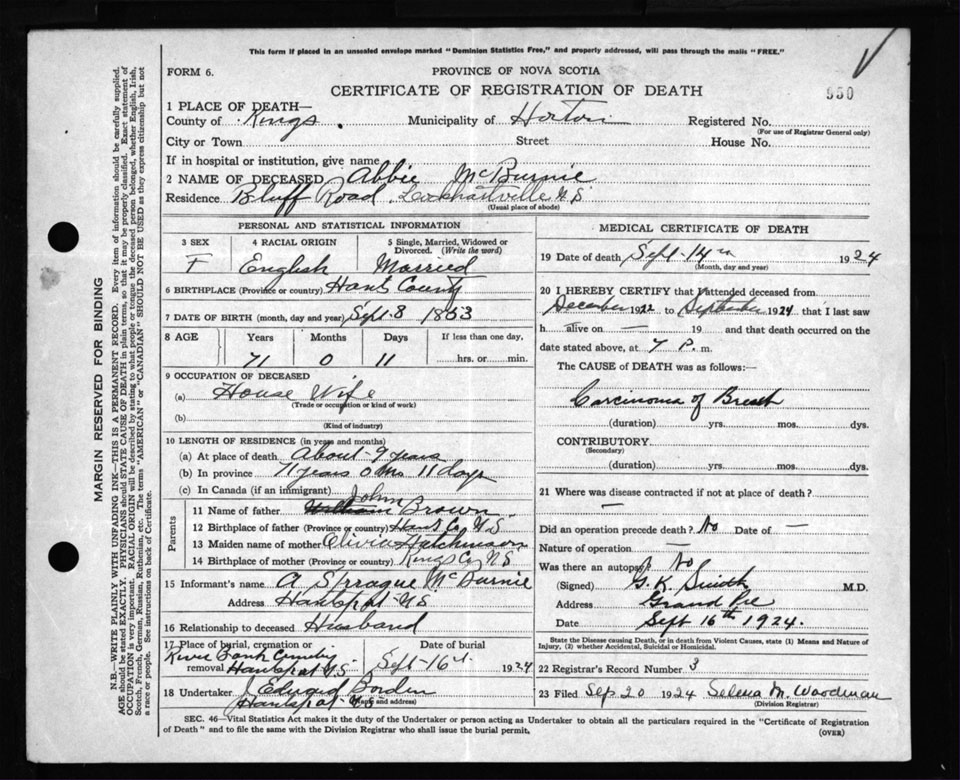 This form if placed in an unsealed envelope marked "Dominion Statistics Free," and properly addressed, will pass through the mails "FREE."
FORM 6.
PROVINCE OF NOVA SCOTIA
CERTIFICATE OF REGISTRATION OF DEATH
950
1 PLACE OF DEATH—
County of Kings. Municipality of Horton Registered No.
(For use of Registrar General only)
City or Town Street House No.
If in hospital or institution, give name
2 NAME OF DECEASED Abbie McBurnie
Residence Bluff Road, Lockhartville N.S
(Usual place of abode)
PERSONAL AND STATISTICAL INFORMATION
3 SEX 4 RACIAL ORIGIN 5 Single, Married, Widowed or Divorced. (Write the word)
F English Married
6 BIRTHPLACE (Province or country) Hants County
7 DATE OF BIRTH (month, day and year) Sept 8 1853
8 AGE Years Months Days If less than one day,
71 0 11 hrs. or min.
9 OCCUPATION OF DECEASED
(a) House Wife
(Trade or occupation or kind of work)
(b)
(Kind of industry)
10 LENGTH OF RESIDENCE (in years and months)
(a) At place of death About 9 years
(b) In province 71 years 0 ms 11 days
(c) In Canada (if an immigrant)
Parents
John
11 Name of father William Brown
12 Birthplace of father (Province or country) Hants Co N.S
13 Maiden name of mother Olivia Hutchinson
14 Birthplace of mother (Province or country) Kings Co N.S
15 Informant's name A Sprague McBurnie
Address Hantsport N.S.
16 Relationship to deceased Husband
17 Place of burial, cremation or removal Date of burial
River Bank Hantsport N.S Sept 16th 1924
18 Undertaker Edward Borden
Hantsport
(Name and address)
MEDICAL CERTIFICATE OF DEATH
19 Date of death Sept 14th 1924
(Month, day and year)
20 I HEREBY CERTIFY that I attended deceased from
December 1922 to September 1924 that I last saw
h alive on — 19 and that death occurred on
date stated above, at 7 P. m.
The CAUSE of DEATH was as follows:—
Carcinoma of Breast
(duration) yrs. mos. dys.
CONTRIBUTORY
(Secondary)
(duration) yrs. mos. dys.
21 Where was disease contracted if not at place of death?
—
Did an operation precede death? No Date of —
Nature of operation —
Was there an autopsy? No
(Signed) G. K. Smith M.D.
Address Grand Pre
Date Sept 16th 1924.
State the Disease causing Death, or in death from Violent Causes, state (1) Means and Nature of Injury, (2) whether Accidental, Suicidal or Homicidal.
22 Registrar's Record Number 3
23 Filed Sep 20 1924 Selena M. Woodman
(Division Registrar)
SEC. 46—Vital Statistics Act makes it the duty of the Undertaker or person acting as Undertaker to obtain all the particulars required in the "Certificate of Registration
of Death" and to file the same with the Division Registrar who shall issue the burial permit.
(OVER)
MARGIN RESERVED FOR BINDING
N.B.—WRITE PLAINLY WITH UNFADING INK—THIS IS A PERMANENT RECORD. Every item of information should be carefully supplied.
AGE should be stated EXACTLY. PHYSICIANS should STATE CAUSE OF DEATH in plain terms, so that it may be properly classified. Exact statement of
OCCUPATION is very important. RACIAL ORIGIN will be described by stating to what people or tongue the deceased person belonged, whether English, Irish,
Scotch, French, German, Russian, Ruthenian, etc. The terms "AMERICAN" or "CANADIAN" SHOULD NOT BE USED as they express citizenship but not
a race or people. See instructions on back of Certificate.